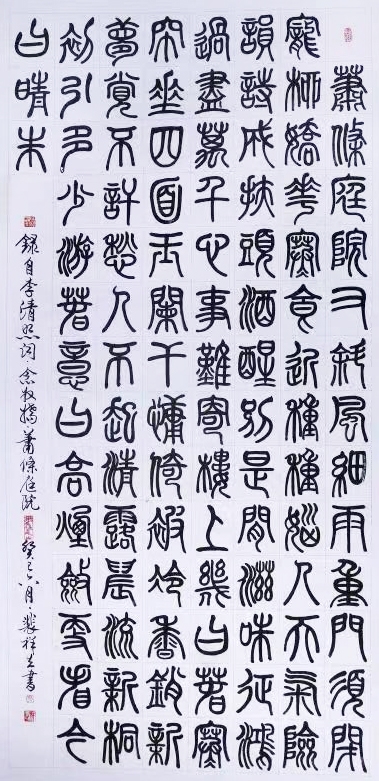 蕭條庭院又斜風細雨重門須閉
寵柳嬌花寒食近種種惱人天氣險
韻詩成扶頭酒醒別是閒滋味征鴻
過盡萬千心事難寄樓上幾日春寒
帘垂四面玉闌干慵倚被冷香銷新
夢覺不許愁人不起清露晨流新桐
初引多少游春意日高煙斂更看今
日晴未
錄自李清照词念奴嬌蕭條庭院 癸巳八月 祥生書